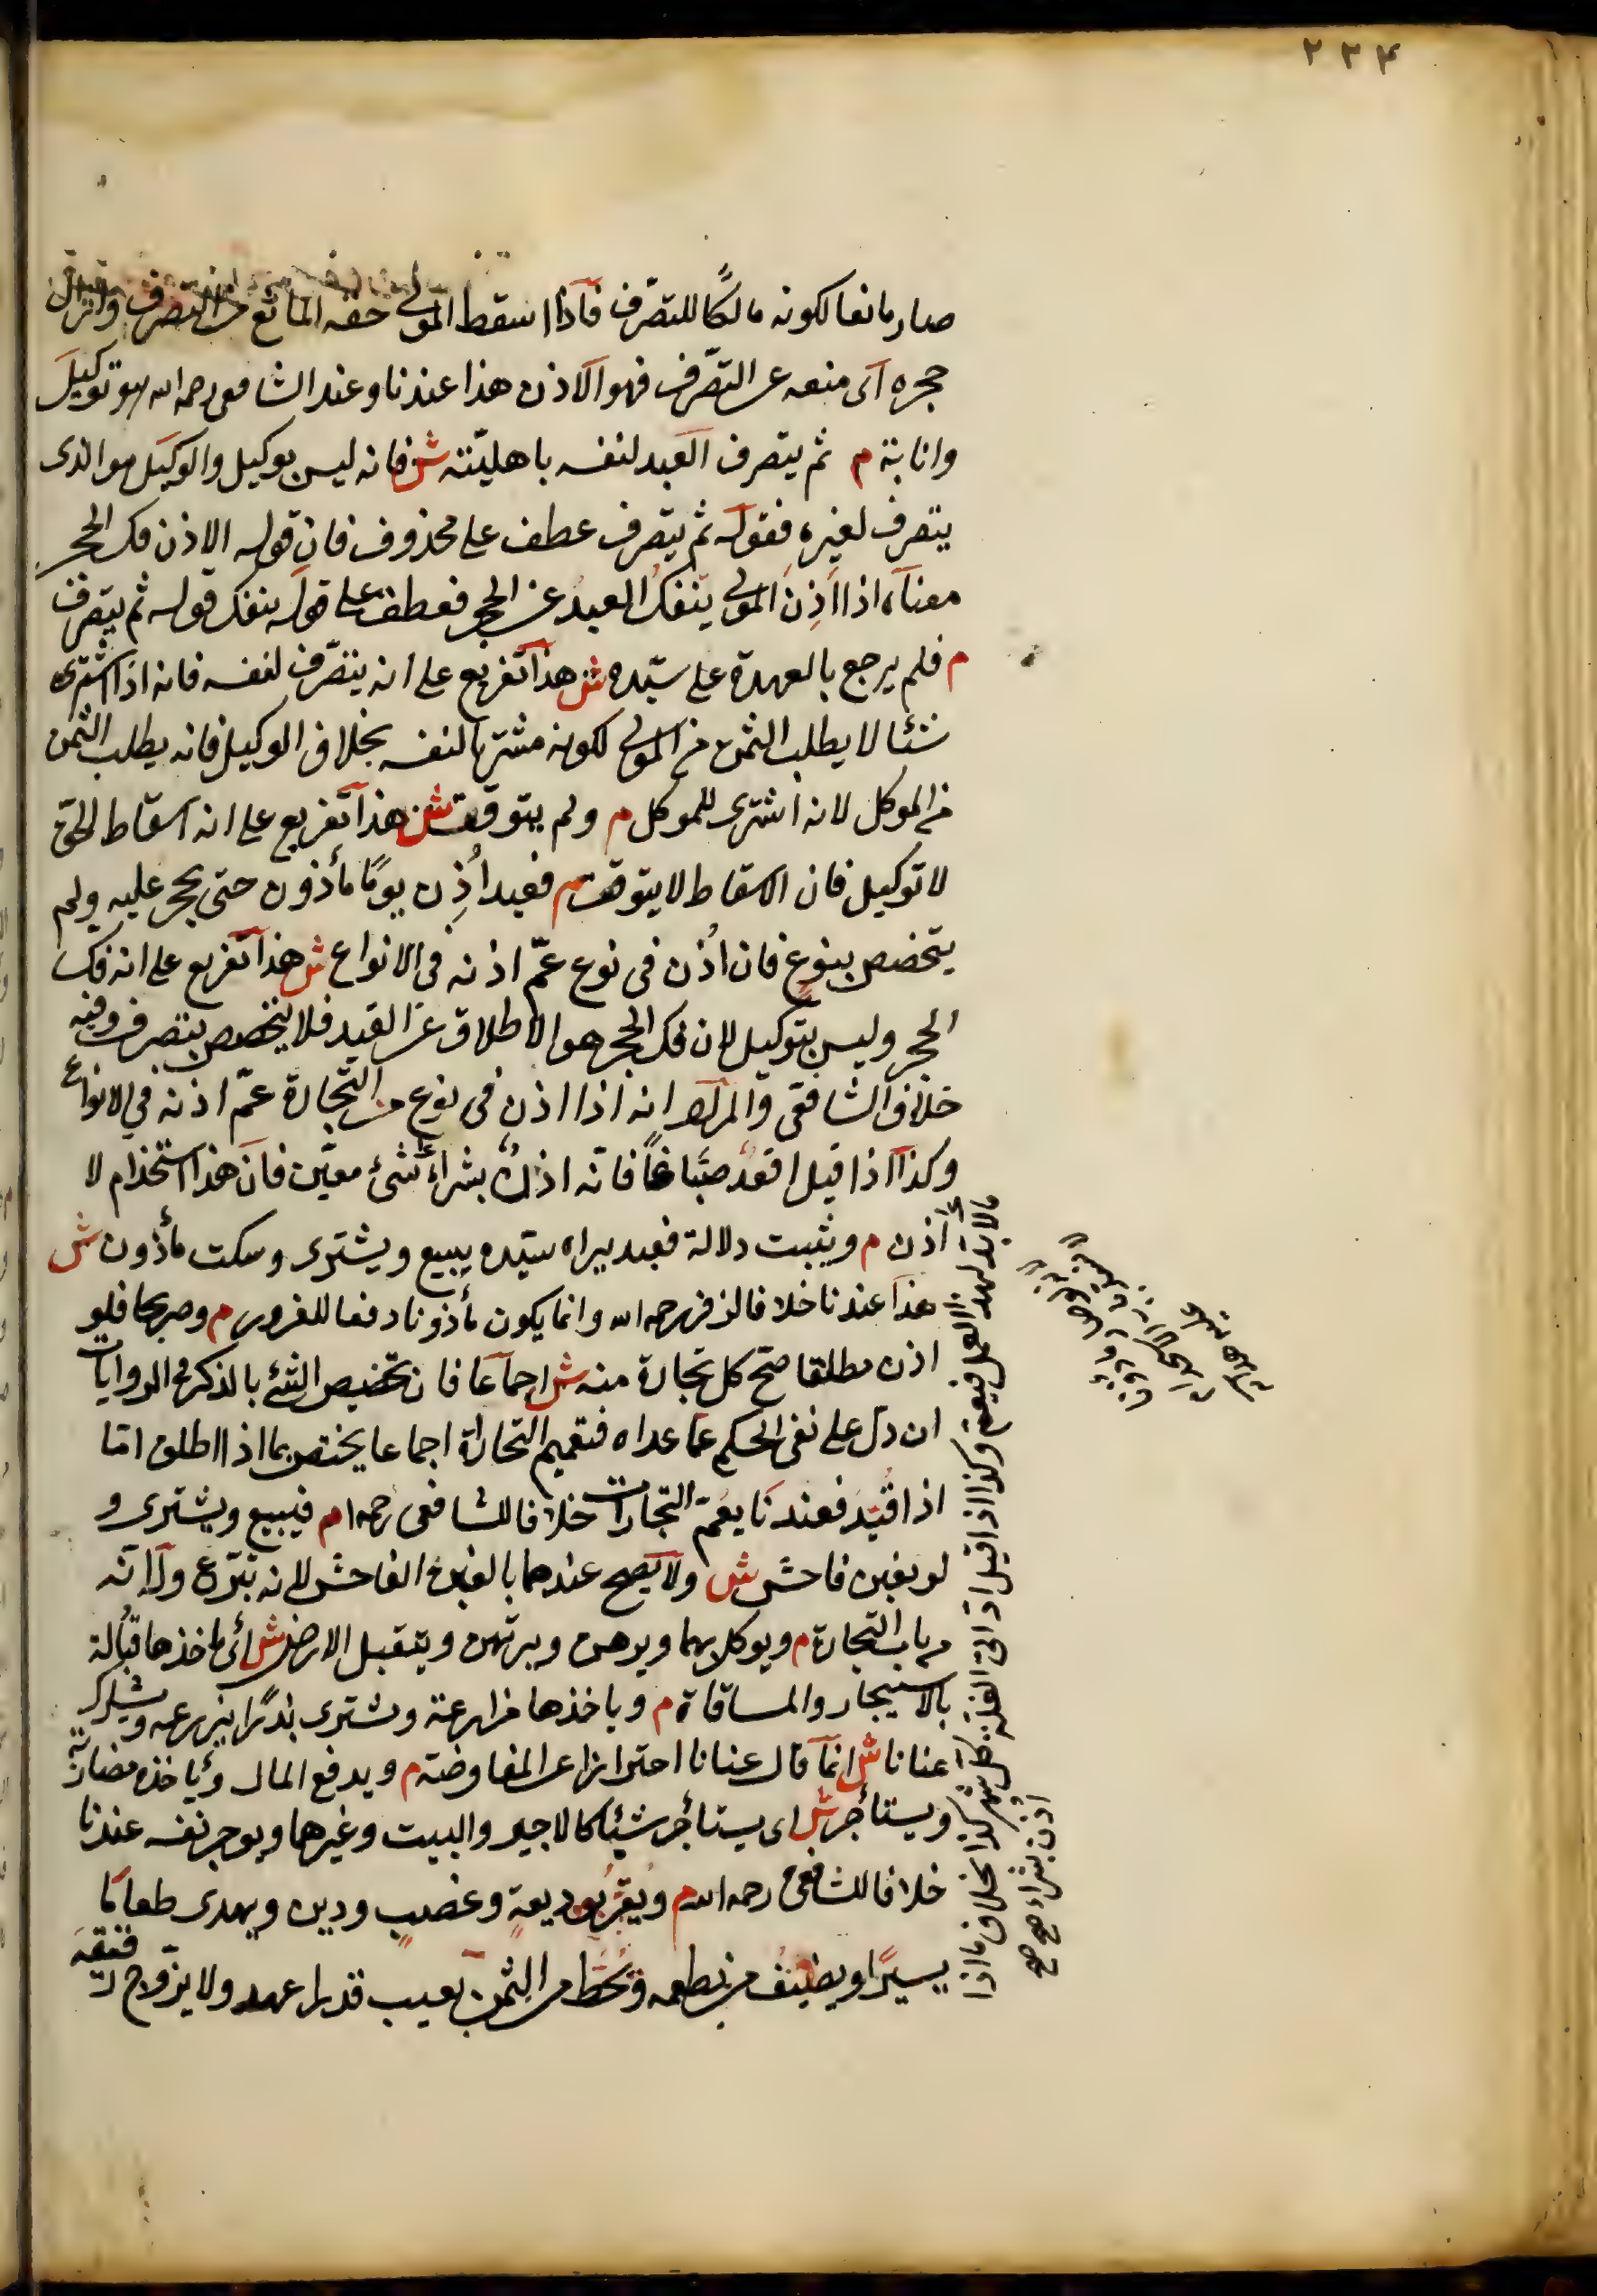 ٢٣۴
صار مانعا لكونه مالكًا للتصرف فاذا اسقط المولى حقه المانع من التصرف وازال
حجره اى منعه عن التصرف فهو الاذن هذا عندنا وعند الشافعى رحمه الله هو توكيل
وانابة م ثم يتصرف العبد لنفسه باهليّته ش فانه ليس بوكيل والوكيل هو الذى
يتصرف لغيره فقوله ثم يتصرف عطف على محذوف فان قوله الاذن فك الحجر
معناه اذا اَذِنَ المولى ينفك العبدُ عن الحجر فعطف على قوله ينفك قوله ثم يتصرف
م فلم يرجع بالعهدة على سيّده ش هذا تفريع على انه يتصرّف لنفسه فانه اذا اشترى
شئا لا يطلب الثمن من المولى لكونه مشتريا لنفسه بخلاف الوكيل فانه يطلب الثمن
من الموكل لانه اشترى للموكل م ولم يتوقت ش هذا تفريع على انه اسقاط الحق
لا توكيل فان الاسقاط لا يتوقت م فعبد اُذِن يومًا مأذون حتى يحجر عليه ولم
يتخصص بنوعٍ فان اُذن فى نوع عمّ اذنه فى الانواع ش هذا تفريع على انه فك
الحجر وليس بتوكيل لان فك الحجر هو الاطلاق عن القيد فلا يتخصص بتصرف وفيه
خلاف الشافعى والمراد انه اذا اذن فى نوع من التجارة عمّ اذنه فى الانواع
وكذا اذا قيل اقعُد صبّاغًا فانّه اذنٌ بشراء شئ معيّن فان هذا استخدام لا
اذن م ويثبت دلالة فعبد يراه سيّده يبيع ويشترى وسكت مأذون ش
هذا عندنا خلافا لزفر رحمه الله وانما يكون مأذونا دفعا للغرور م وصريحا فلو
اذن مطلقا صحّ كل تجارة منه ش اجماعا فان تخصيص الشئ بالذكر فى الروايات
ان دلّ على نفى الحكم عمّا عداه فتعميم التجارة اجماعا يختص بما اذا اطلق امّا
اذا قُيّد فعندنا يعُمّ التجارات خلافا للشافعى رحمه ا م فيبيع ويشترى و
لو بغبن فاحش ش ولا يصح عندهما بالغبن الفاحش لانه تبرّع وله انّه
من باب التجارة م ويوكل بهما ويرهن ويرتهن ويتقبل الارض ش اى ياخذها قبالة
بالاستيجار والمساقاة م وياخذها مزارعة ويشترى بذرًا يزرعه ويشارك
عنانا ش انما قال عنانا احترازا عن المفاوضة م ويدفع المال وياخذه مضاربة
ويستأجر ش اى يستأجر شيئا كالاجير والبيت وغيرها ويوجر نفسه عندنا
خلافا للشافعى رحمه الله م ويُقِرّ بوديعةٍ وغصبٍ ودين ويهدى طعامًا
يسيرًا ويضيف من يطعمه ويحُطّ من الثمن بعيب قدرا عهد ولا يزوّج رقيقه
مالابد لهذا العمل فيعم وكذا اذا قيل ادّ الىّ الغلة كل شهر كذا بخلاف ما اذا
اذن بشراء صح صح